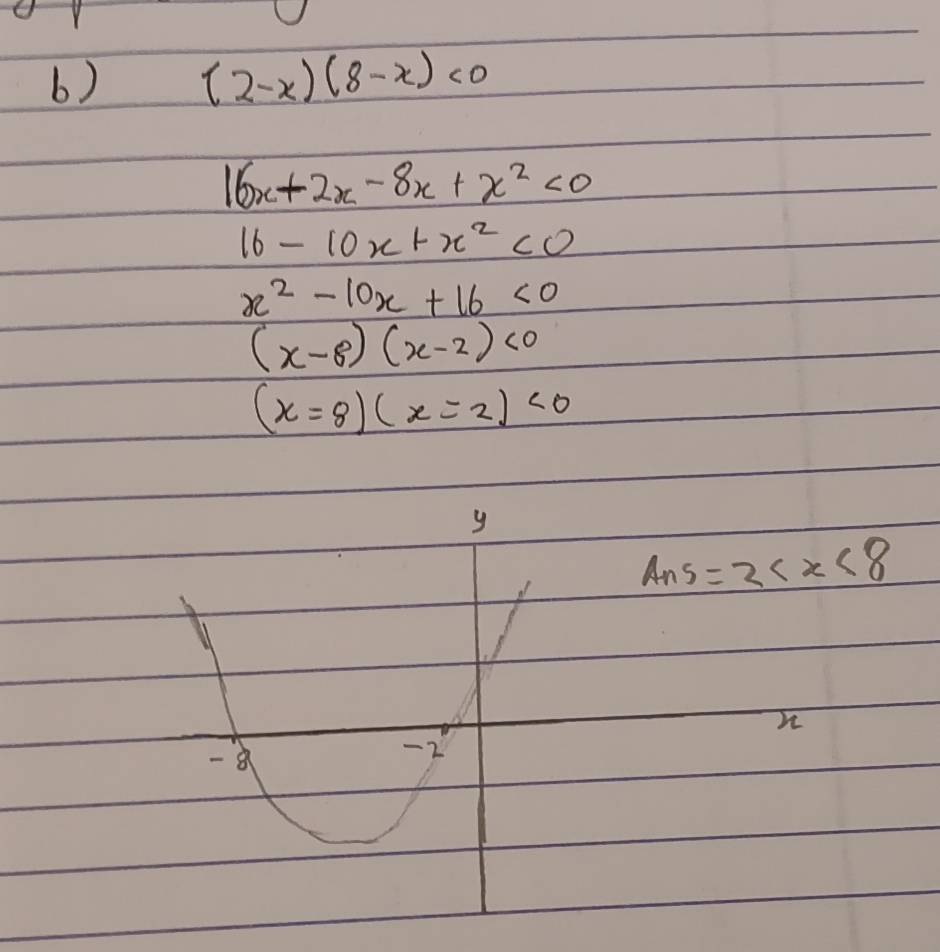 b) (2-x)(8-x) <0
16x+2x-8x+x² <0
16-10x+x² <0
x²-10x+16 <0
(x-8)(x-2) <0
(x=8)(x=2) <0
y
Ans = 2<x<8
x
-8
-2